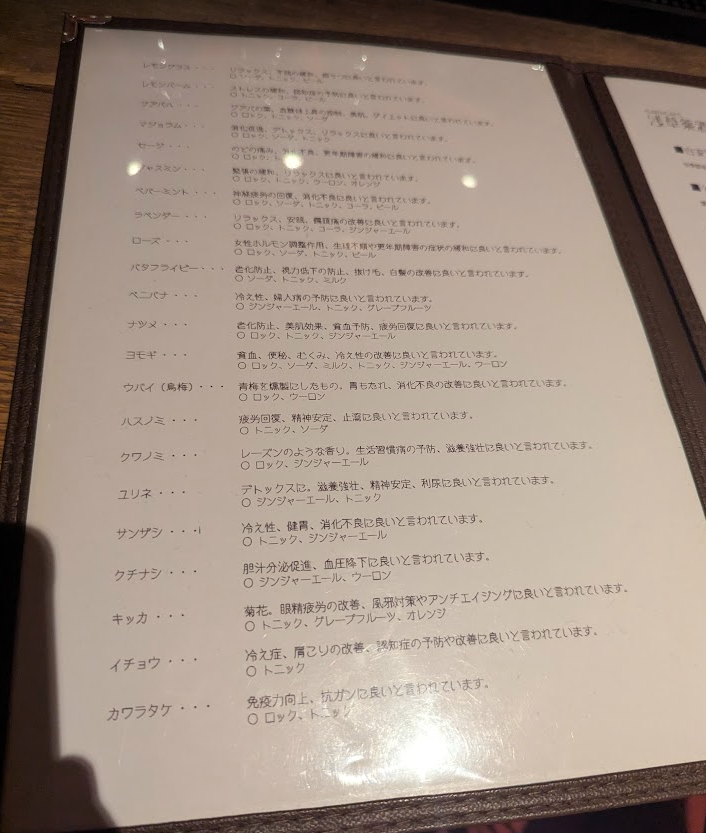 レモングラス・・・ リラックス、
○ ソーダ、トニック、ビール
レモンバーム・・・ ストレスの緩和、認知症の予防に良いと言われています。
○ トニック、コーラ、ビール
グアバ
○ ロック、トニック、ソーダ
マジョラム・・・ 消化促進、デトックス、リラックスに良いと言われています。
○ ロック、ソーダ、トニック
セージ・・・ のどの痛み、 更年期障害の緩和に良いと言われています。
○ ロック、 トニック
ジャスミン・・・ 緊張の緩和、リラックスに良いと言われています。
○ ロック、トニック、ウーロン、オレンジ
ペパーミント・・・ 神経疲労の回復、消化不良に良いと言われています。
○ ロック、ソーダ、トニック、コーラ、ビール
ラベンダー・・・ リラックス、安眠、偏頭痛の改善に良いと言われています。
○ ロック、トニック、コーラ、ジンジャーエール
ローズ・・・ 女性ホルモン調整作用、生理不順や更年期障害の症状の緩和に良いと言われています。
○ ロック、ソーダ、トニック、ビール
バタフライピー・・・ 老化防止、視力低下の防止、抜け毛、白髪の改善に良いと言われています。
○ ソーダ、トニック、ミルク
ベニバナ・・・ 冷え性、婦人病の予防に良いと言われています。
○ ジンジャーエール、トニック、グレープフルーツ
ナツメ・・・ 老化防止、美肌効果、貧血予防、疲労回復に良いと言われています。
○ ロック、トニック、ジンジャーエール
ヨモギ・・・ 貧血、便秘、むくみ、冷え性の改善に良いと言われています。
○ ロック、ソーダ、ミルク、トニック、ジンジャーエール、ウーロン
ウバイ（烏梅）・・・ 青梅を燻製にしたもの。胃もたれ、消化不良の改善に良いと言われています。
○ ロック、ウーロン
ハスノミ・・・ 疲労回復、精神安定、止瀉に良いと言われています。
○ トニック、ソーダ
クワノミ・・・ レーズンのような香り。生活習慣病の予防、滋養強壮に良いと言われています。
○ ロック、ジンジャーエール
ユリネ・・・ デトックスに。滋養強壮、精神安定、利尿に良いと言われています。
○ ジンジャーエール、トニック
サンザシ・・・i 冷え性、健胃、消化不良に良いと言われています。
○ トニック、ジンジャーエール
クチナシ・・・ 胆汁分泌促進、血圧降下に良いと言われています。
○ ジンジャーエール、ウーロン
キッカ・・・ 菊花。眼精疲労の改善、風邪対策やアンチエイジングに良いと言われています。
○ トニック、グレープフルーツ、オレンジ
イチョウ・・・ 冷え症、肩こりの改善、認知症の予防や改善に良いと言われています。
○ トニック
カワラタケ・・・ 免疫力向上、抗ガンに良いと言われています。
○ ロック、トニック
浅草薬酒